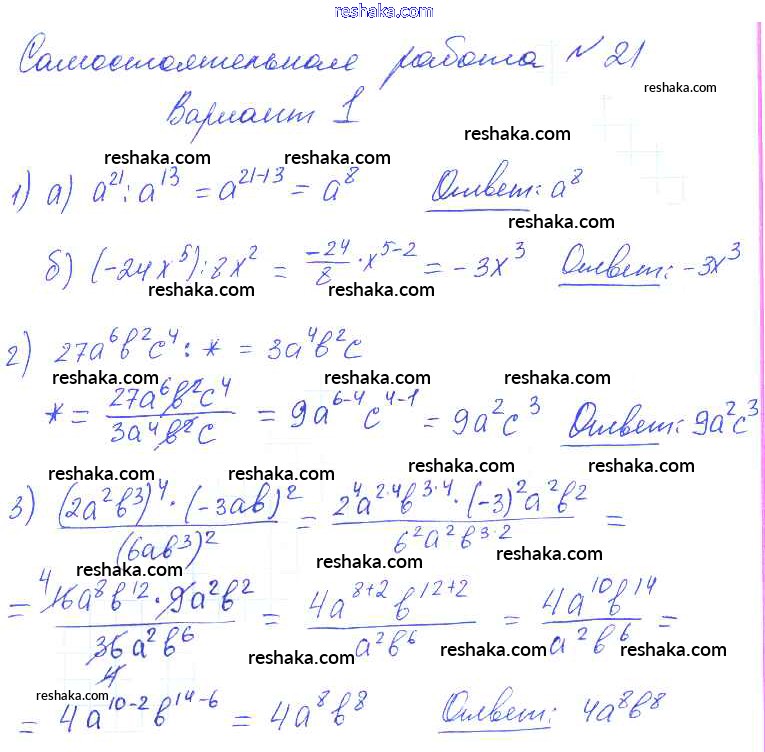 reshaka.com
Самостоятельная работа № 21
reshaka.com
Вариант 1
reshaka.com
reshaka.com reshaka.com
1) а) a²¹ : a¹³ = a²¹⁻¹³ = a⁸ Ответ: a⁸
reshaka.com
б) (-24x⁵) : 8x² = -24/8 · x⁵⁻² = -3x³ Ответ: -3x³
reshaka.com reshaka.com reshaka.com
2) 27a⁶b²c⁴ : * = 3a⁴b²c
reshaka.com reshaka.com reshaka.com
* = 27a⁶b²c⁴ / 3a⁴b²c = 9a⁶⁻⁴c⁴⁻¹ = 9a²c³ Ответ: 9a²c³
reshaka.com reshaka.com reshaka.com
3) (2a²b³)⁴ · (-3ab)² / (6ab³)² = 2⁴a²·⁴b³·⁴ · (-3)²a²b² / 6²a²b³·² =
reshaka.com reshaka.com reshaka.com
= 4 16a⁸b¹² · 9a²b² / 36a²b⁶ 4 = 4a⁸⁺²b¹²⁺² / a²b⁶ = 4a¹⁰b¹⁴ / a²b⁶ =
reshaka.com reshaka.com reshaka.com
reshaka.com reshaka.com reshaka.com
= 4a¹⁰⁻²b¹⁴⁻⁶ = 4a⁸b⁸ Ответ: 4a⁸b⁸
reshaka.com reshaka.com reshaka.com